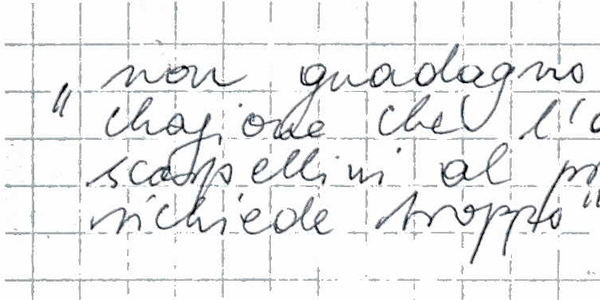 " non guadagno
chagione che l'a
scarpellini al pr
richiede troppo"